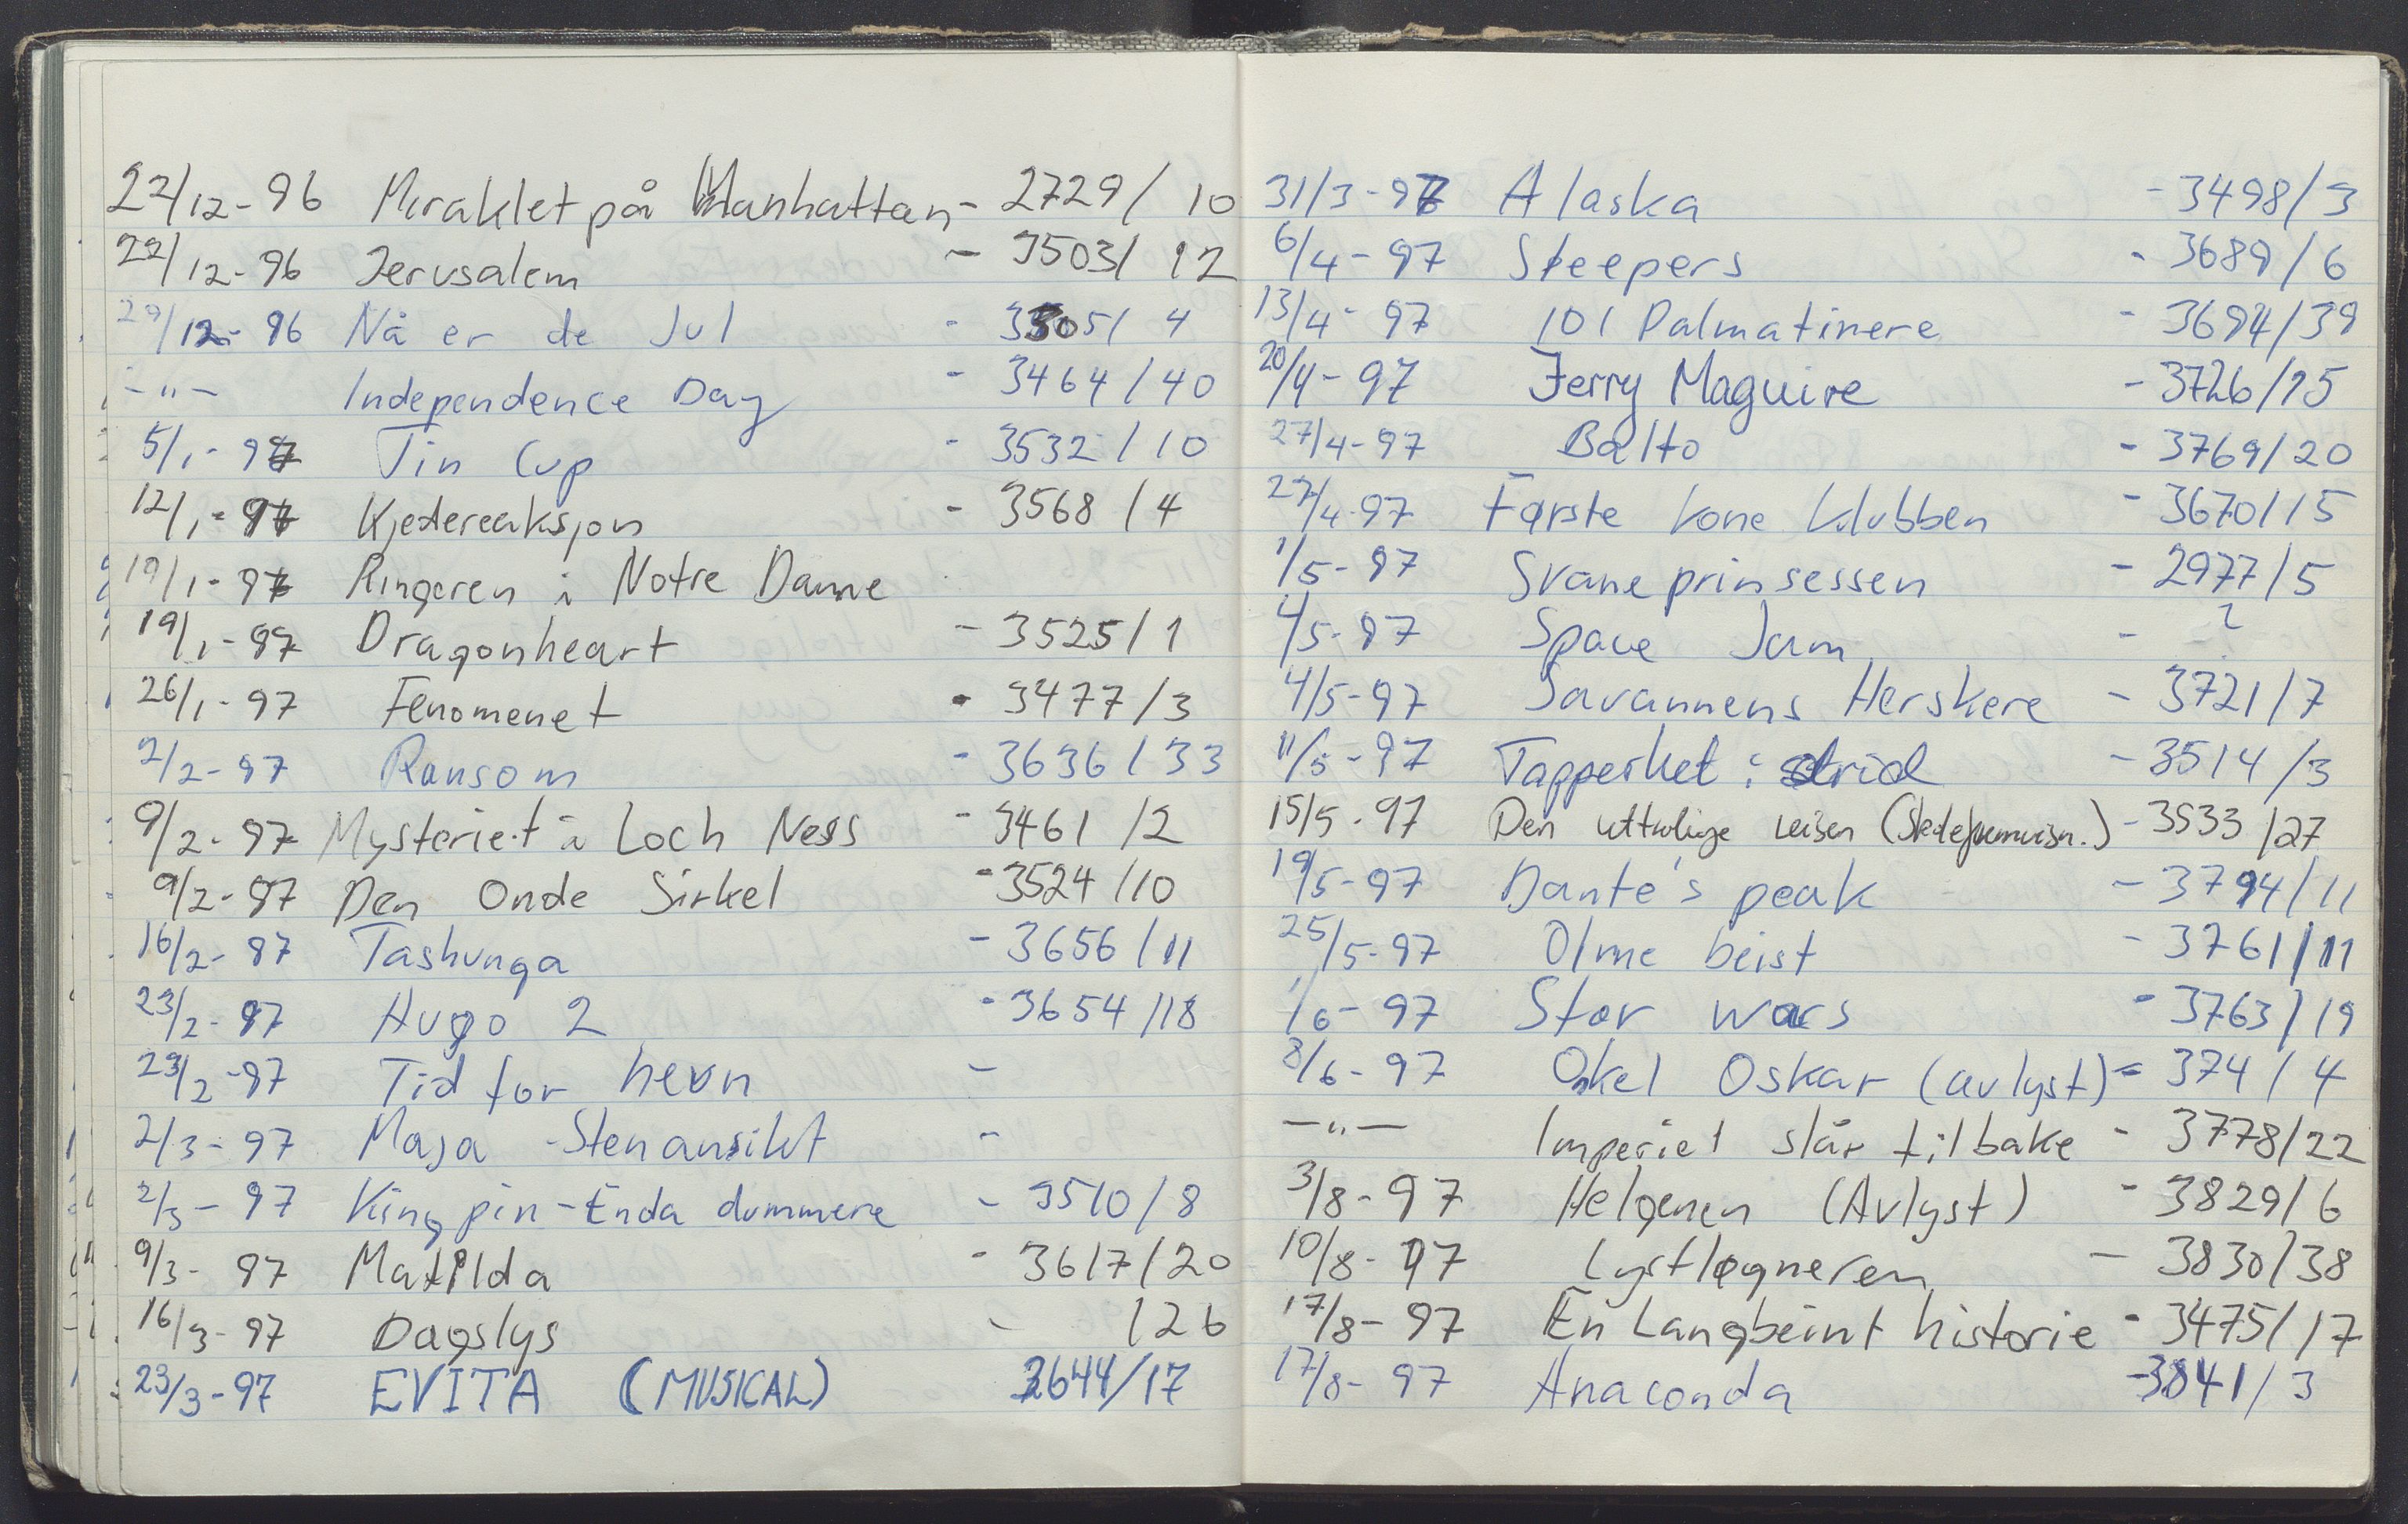 22/12-96 Miraklet på Manhattan - 2729/ 10
22/12-96 Jerusalem - 3503/ 12
29/12-96 Nå er de Jul - 3505/ 4
-"- Independence Day - 3464/40
5/1-97 Tin Cup - 3532/10
12/1-97 Kjedereaksjon - 3568/4
19/1-97 Ringeren i Notre Dame
19/1-97 Dragonheart - 3525/1
26/1-97 Fenomenet - 3477/3
2/2-97 Ransom - 3636/33
9/2-97 Mysteriet i Loch Ness - 3461/2
9/2-97 Den Onde Sirkel - 3524/10
16/2-97 Tashunga - 3656/11
23/2-97 Hugo 2 - 3654/18
23/2-97 Tid for hevn -
2/3-97 Maja -Stenansikt -
2/3-97 King pin - Enda dummere - 3510/8
9/3-97 Matilda - 3617/20
16/3-97 Dagslys - /26
23/3-97 EVITA (MUSICAL) 3644/17
31/3-97 Alaska - 3498/3
6/4-97 Sleepers - 3689/6
13/4-97 101 Dalmatinere - 3694/39
20/4-97 Jerry Maguire - 3726/15
27/4-97 Balto - 3769/20
27/4-97 Første kone klubben - 3670/15
1/5-97 Svane prinsessen - 2977/5
4/5-97 Space Jam - ?
4/5-97 Savannens Herskere - 3721/7
11/5-97 Tapperhet i strid - 3514/3
15/5-97 Den utrolige reisen - 3533/27
19/5-97 Dante's peak - 3794/11
25/5-97 Olme beist - 3761/11
1/6-97 Star wars - 3763/19
8/6-97 Onkel Oskar (avlyst) - 374/4
-"- Imperiet slår tilbake - 3778/22
3/8-97 Helgenen (Avlyst) - 3829/6
10/8-97 Lystløgneren - 3830/38
17/8-97 En Langbeint historie - 3475/17
17/8-97 Anaconda - 3841/3